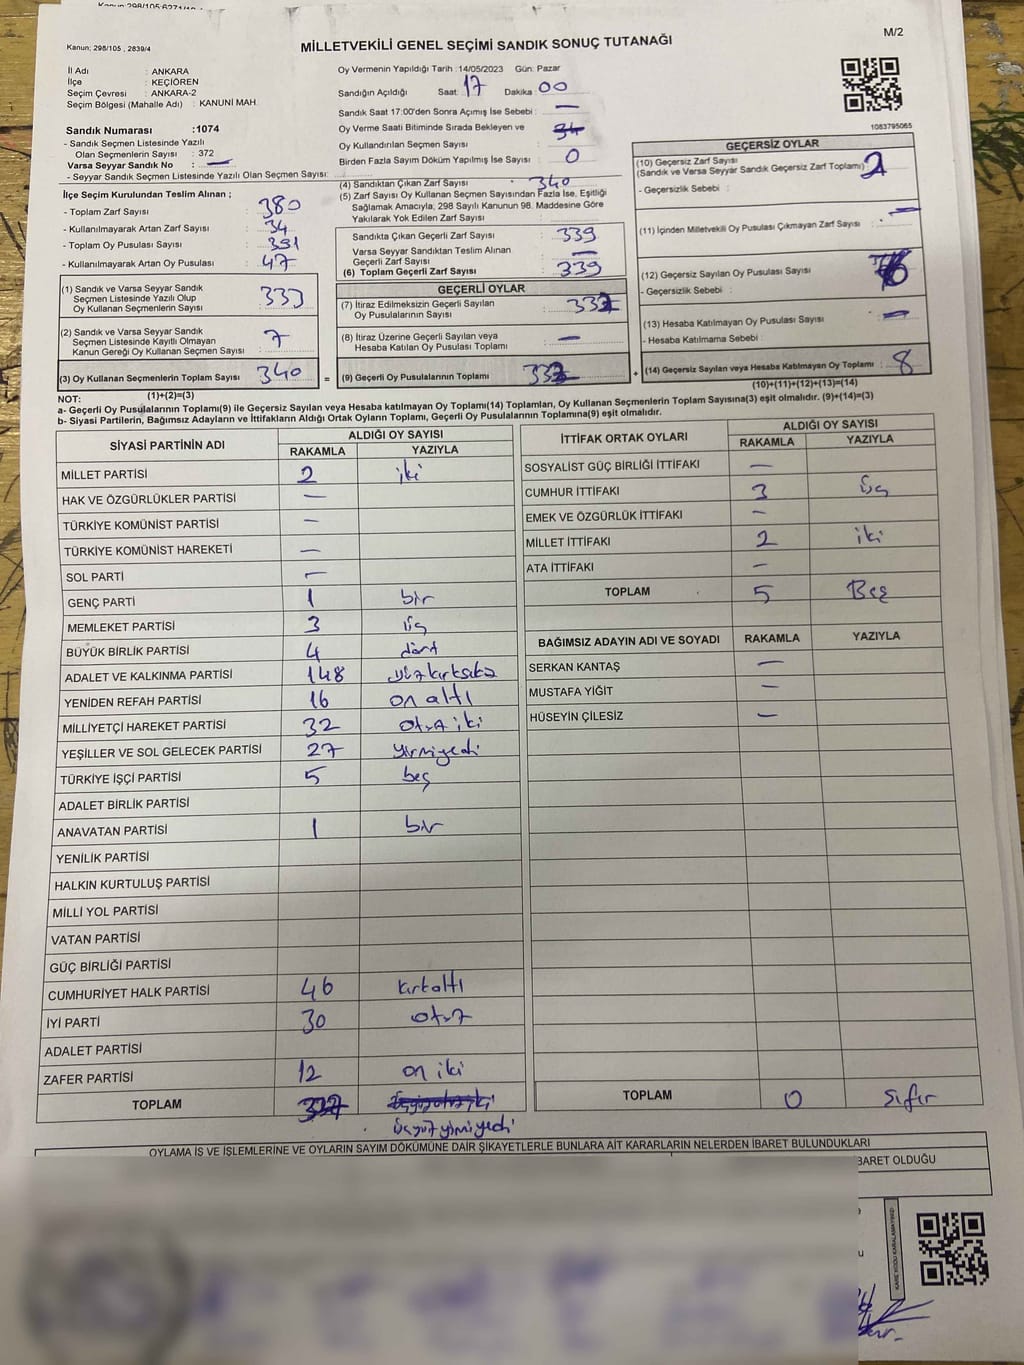 M/2
Kanun; 298/105 , 2839/4
MİLLETVEKİLİ GENEL SEÇİMİ SANDIK SONUÇ TUTANAĞI
İl Adı : ANKARA
İlçe : KEÇİÖREN
Seçim Çevresi : ANKARA-2
Seçim Bölgesi (Mahalle Adı) : KANUNİ MAH.
Sandık Numarası :1074
- Sandık Seçmen Listesinde Yazılı
Olan Seçmenlerin Sayısı : 372
Varsa Seyyar Sandık No : —
- Seyyar Sandık Seçmen Listesinde Yazılı Olan Seçmen Sayısı:
Oy Vermenin Yapıldığı Tarih :14/05/2023 Gün: Pazar
Sandığın Açıldığı Saat: 17 Dakika : 00
Sandık Saat 17:00'den Sonra Açımış İse Sebebi : —
Oy Verme Saati Bitiminde Sırada Bekleyen ve
Oy Kullandırılan Seçmen Sayısı :
Birden Fazla Sayım Döküm Yapılmış İse Sayısı : 0
1083795065
İlçe Seçim Kurulundan Teslim Alınan ;
- Toplam Zarf Sayısı : 380
- Kullanılmayarak Artan Zarf Sayısı : 34
- Toplam Oy Pusulası Sayısı : 391
- Kullanılmayarak Artan Oy Pusulası : 47
(1) Sandık ve Varsa Seyyar Sandık
Seçmen Listesinde Yazılı Olup
Oy Kullanan Seçmenlerin Sayısı : 333
(2) Sandık ve Varsa Seyyar Sandık
Seçmen Listesinde Kayıtlı Olmayan
Kanun Gereği Oy Kullanan Seçmen Sayısı : 7
(3) Oy Kullanan Seçmenlerin Toplam Sayısı : 340
(1)+(2)=(3)
(4) Sandıktan Çıkan Zarf Sayısı : 340
(5) Zarf Sayısı Oy Kullanan Seçmen Sayısından Fazla İse, Eşitliği
Sağlamak Amacıyla, 298 Sayılı Kanunun 98. Maddesine Göre
Yakılarak Yok Edilen Zarf Sayısı :
Sandıkta Çıkan Geçerli Zarf Sayısı : 339
Varsa Seyyar Sandıktan Teslim Alınan
Geçerli Zarf Sayısı : —
(6) Toplam Geçerli Zarf Sayısı : 339
GEÇERLİ OYLAR
(7) İtiraz Edilmeksizin Geçerli Sayılan
Oy Pusulalarının Sayısı :
(8) İtiraz Üzerine Geçerli Sayılan veya
Hesaba Katılan Oy Pusulası Toplamı : —
= (9) Geçerli Oy Pusulalarının Toplamı :
GEÇERSİZ OYLAR
(10) Geçersiz Zarf Sayısı
(Sandık ve Varsa Seyyar Sandık Geçersiz Zarf Toplamı) : 2
- Geçersizlik Sebebi :
(11) İçinden Milletvekili Oy Pusulası Çıkmayan Zarf Sayısı : —
(12) Geçersiz Sayılan Oy Pusulası Sayısı : 6
- Geçersizlik Sebebi :
(13) Hesaba Katılmayan Oy Pusulası Sayısı : —
- Hesaba Katılmama Sebebi :
+ (14) Geçersiz Sayılan veya Hesaba Katılmayan Oy Toplamı : 8
(10)+(11)+(12)+(13)=(14)
NOT:
a- Geçerli Oy Pusulalarının Toplamı(9) ile Geçersiz Sayılan veya Hesaba katılmayan Oy Toplamı(14) Toplamları, Oy Kullanan Seçmenlerin Toplam Sayısına(3) eşit olmalıdır. (9)+(14)=(3)
b- Siyasi Partilerin, Bağımsız Adayların ve İttifakların Aldığı Ortak Oyların Toplamı, Geçerli Oy Pusulalarının Toplamına(9) eşit olmalıdır.
SİYASİ PARTİNİN ADI ALDIĞI OY SAYISI
RAKAMLA YAZIYLA
MİLLET PARTİSİ 2 iki
HAK VE ÖZGÜRLÜKLER PARTİSİ —
TÜRKİYE KOMÜNİST PARTİSİ —
TÜRKİYE KOMÜNİST HAREKETİ —
SOL PARTİ —
GENÇ PARTİ 1 bir
MEMLEKET PARTİSİ 3 üç
BÜYÜK BİRLİK PARTİSİ 4 dört
ADALET VE KALKINMA PARTİSİ 148 yüzkırksekiz
YENİDEN REFAH PARTİSİ 16 on altı
MİLLİYETÇİ HAREKET PARTİSİ 32 otuz iki
YEŞİLLER VE SOL GELECEK PARTİSİ 27 yirmiyedi
TÜRKİYE İŞÇİ PARTİSİ 5 beş
ADALET BİRLİK PARTİSİ
ANAVATAN PARTİSİ 1 bir
YENİLİK PARTİSİ
HALKIN KURTULUŞ PARTİSİ
MİLLİ YOL PARTİSİ
VATAN PARTİSİ
GÜÇ BİRLİĞİ PARTİSİ
CUMHURİYET HALK PARTİSİ 46 kırkaltı
İYİ PARTİ 30 otuz
ADALET PARTİSİ
ZAFER PARTİSİ 12 on iki
TOPLAM 327
üçyüzyirmiyedi
İTTİFAK ORTAK OYLARI ALDIĞI OY SAYISI
RAKAMLA YAZIYLA
SOSYALİST GÜÇ BİRLİĞİ İTTİFAKI —
CUMHUR İTTİFAKI 3 üç
EMEK VE ÖZGÜRLÜK İTTİFAKI —
MİLLET İTTİFAKI 2 iki
ATA İTTİFAKI —
TOPLAM 5 Beş
BAĞIMSIZ ADAYIN ADI VE SOYADI RAKAMLA YAZIYLA
SERKAN KANTAŞ —
MUSTAFA YİĞİT —
HÜSEYİN ÇİLESİZ —
TOPLAM 0 sıfır
OYLAMA İŞ VE İŞLEMLERİNE VE OYLARIN SAYIM DÖKÜMÜNE DAİR ŞİKAYETLERLE BUNLARA AİT KARARLARIN NELERDEN İBARET BULUNDUKLARI
BARET OLDUĞU